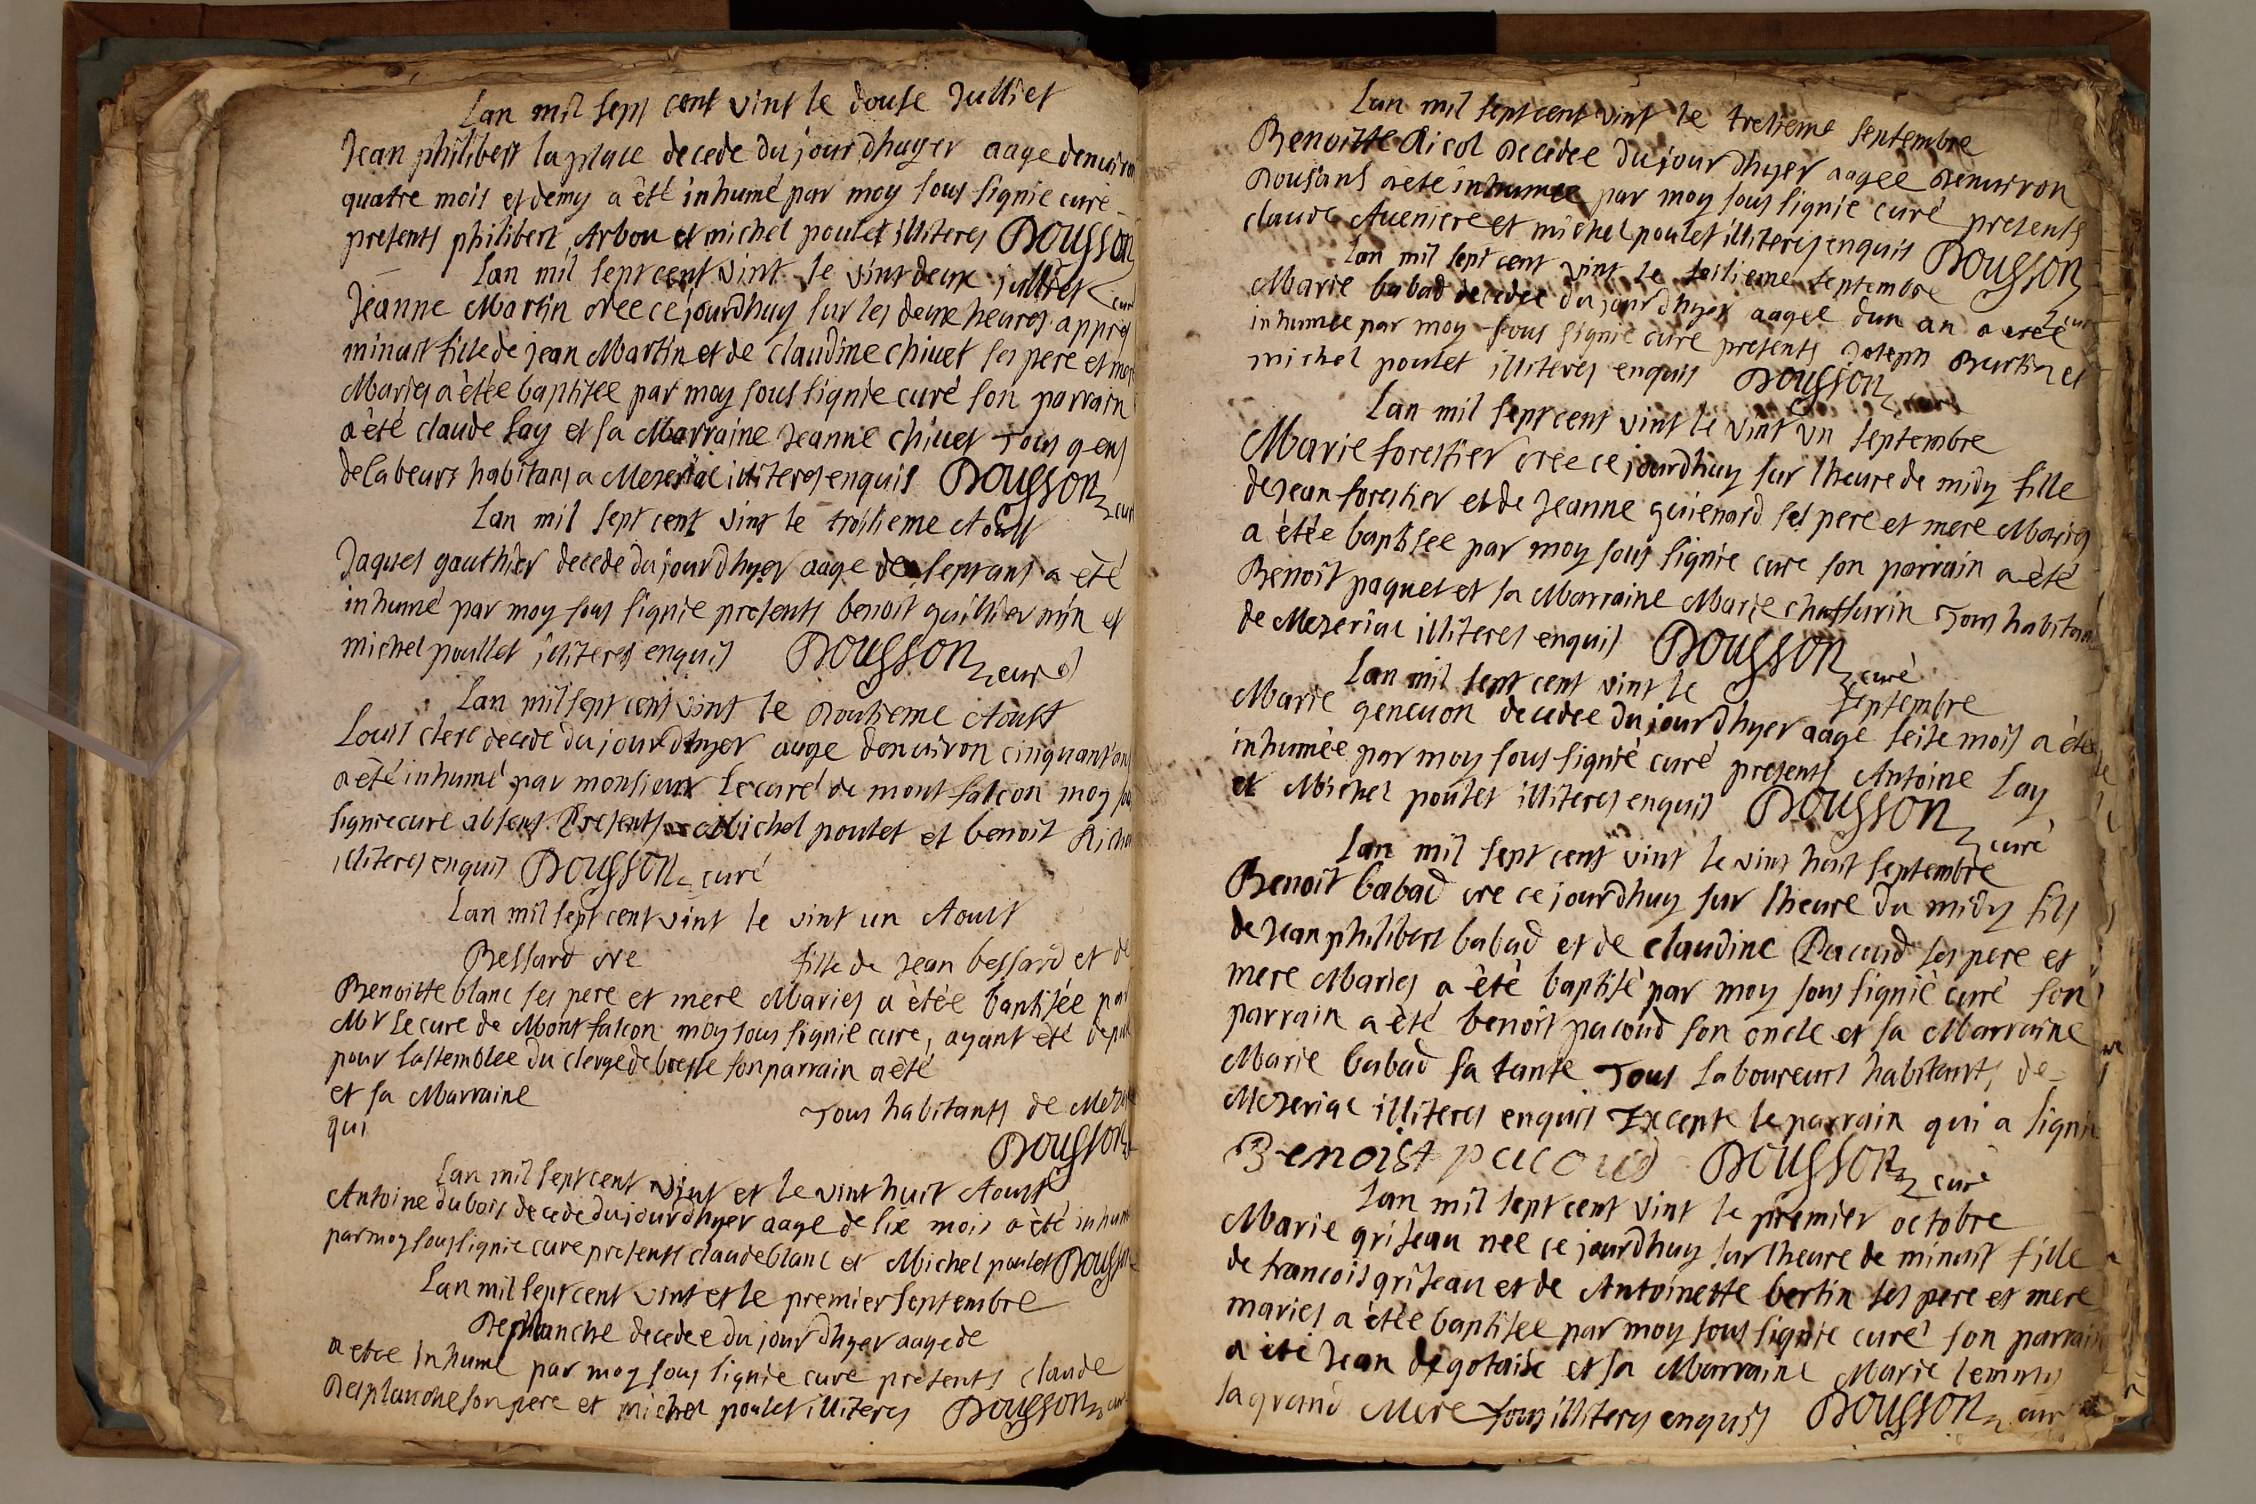 Lan mil sept cent vint le douse Julliet
Jean philibert la place decede du jour dhuyer aage denviron
quatre mois et demy a été inhumé par moy sous signie curé
presents philibert Arbon et michel poulet illiteres DOUSSON
Lan mil sept cent vint le vint deux julliet curé
Jeanne Martin nee ce jourdhuy sur les deux heures appres
minuit fille de jean Martin et de claudine chivet ses pere et mere
Maries a étée baptisee par moy sous signie curé son parrain
a été claude Lay et sa Marraine Jeanne chivet Tous gens
de labeurs habitans a Mezeriac illiteres enquis DOUSSON curé
Lan mil sept cent vint le troisieme Aoust
Jaques gauthier decede du jour dhyer aage de sept ans a été
inhumé par moy sous signie presents benoit guilliermin et
michel poullet illiteres enquis DOUSSON curé
Lan mil sept cent vint le Doutieme Aoust
Louis clerc decede du jour dhyer aage denviron cinquant ans
a été inhumé par monsieur le curé de mont falcon moy sous
signie curé absent. Presents Michel poulet et benoit
illiteres enquis DOUSSON curé
Lan mil sept cent vint le vint un Aoust
Bessard nee fille de Jean bessard et de
Benoitte blanc ses pere et mere Maries a étée baptisée par
Mr le cure de Mont falcon moy sous signie cure, ayant été
pour lassemblee du clerge de bresse son parrain a été
et sa Marraine
Tous habitants de
qui
DOUSSON
Lan mil sept cent vint et le vint huit Aoust
Antoine dubois decede du jour dhyer aage de six mois a été inhumé
par moy sous signie cure presents claude blanc et Michel poulet DOUSSON
Lan mil sept cent vint et le premier septembre
Desplanche decedee du jour dhyer aagee de
a etee inhume par moy sous signie cure presents claude
Desplanche son pere et michel poulet illiteres DOUSSON curé
Lan mil sept cent vint le tretieme septembre
Benoitte Ricol Decedee du jour dhyer aagee denviron
Dous ans a été inhumee par moy sous signie curé presents
claude Aveniere et michel poulet illiteres enquis DOUSSON
Lan mil sept cent vint le seisieme septembre
Marie babad decedee du jour dhyer aagee dun an a etée
inhumee par moy sous signie cure presents Joseph Burtin et
michel poulet illiteres enquis DOUSSON
Lan mil sept cent vint le vint vn septembre
Marie forestier nee ce jourdhuy sur lheure de midy fille
de Jean forestier et de Jeanne guienard ses pere et mere Maries
a étée baptisee par moy sous signie cure son parrain a été
Benoit paquet et sa Marraine Marie chassurin Tous habitans
de Mezeriac illiteres enquis DOUSSON curé
Lan mil sept cent vint le septembre
Marie genevon decedee du jour dhyer aage seise mois a étée
inhumée par moy sous signié curé presents Antoine Lay
et Michel poulet illiteres enquis DOUSSON curé
Lan mil sept cent vint le vint huit septembre
Benoit babad ne ce jourdhuy sur lheure du midy fils
de Jean philibert babad et de claudine Pacoud ses pere et
mere Maries a été baptisé par moy sous signié curé son
parrain a été benoit pacoud son oncle et sa Marraine
Marie babad sa tante Tous Laboureurs habitants de
Mezeriac illiteres enquis Excepte le parrain qui a signie
Benoist pacoud DOUSSON curé
Lan mil sept cent vint le premier octobre
Marie griseau nee ce jourdhuy sur lheure de minuit fille
de francois griseau et de Antoinette bertin ses pere et mere
maries a étée baptisee par moy sous signie curé son parrain
a été Jean degotaise et sa Marraine Marie
sa grand Mere tous illiteres enquis DOUSSON curé